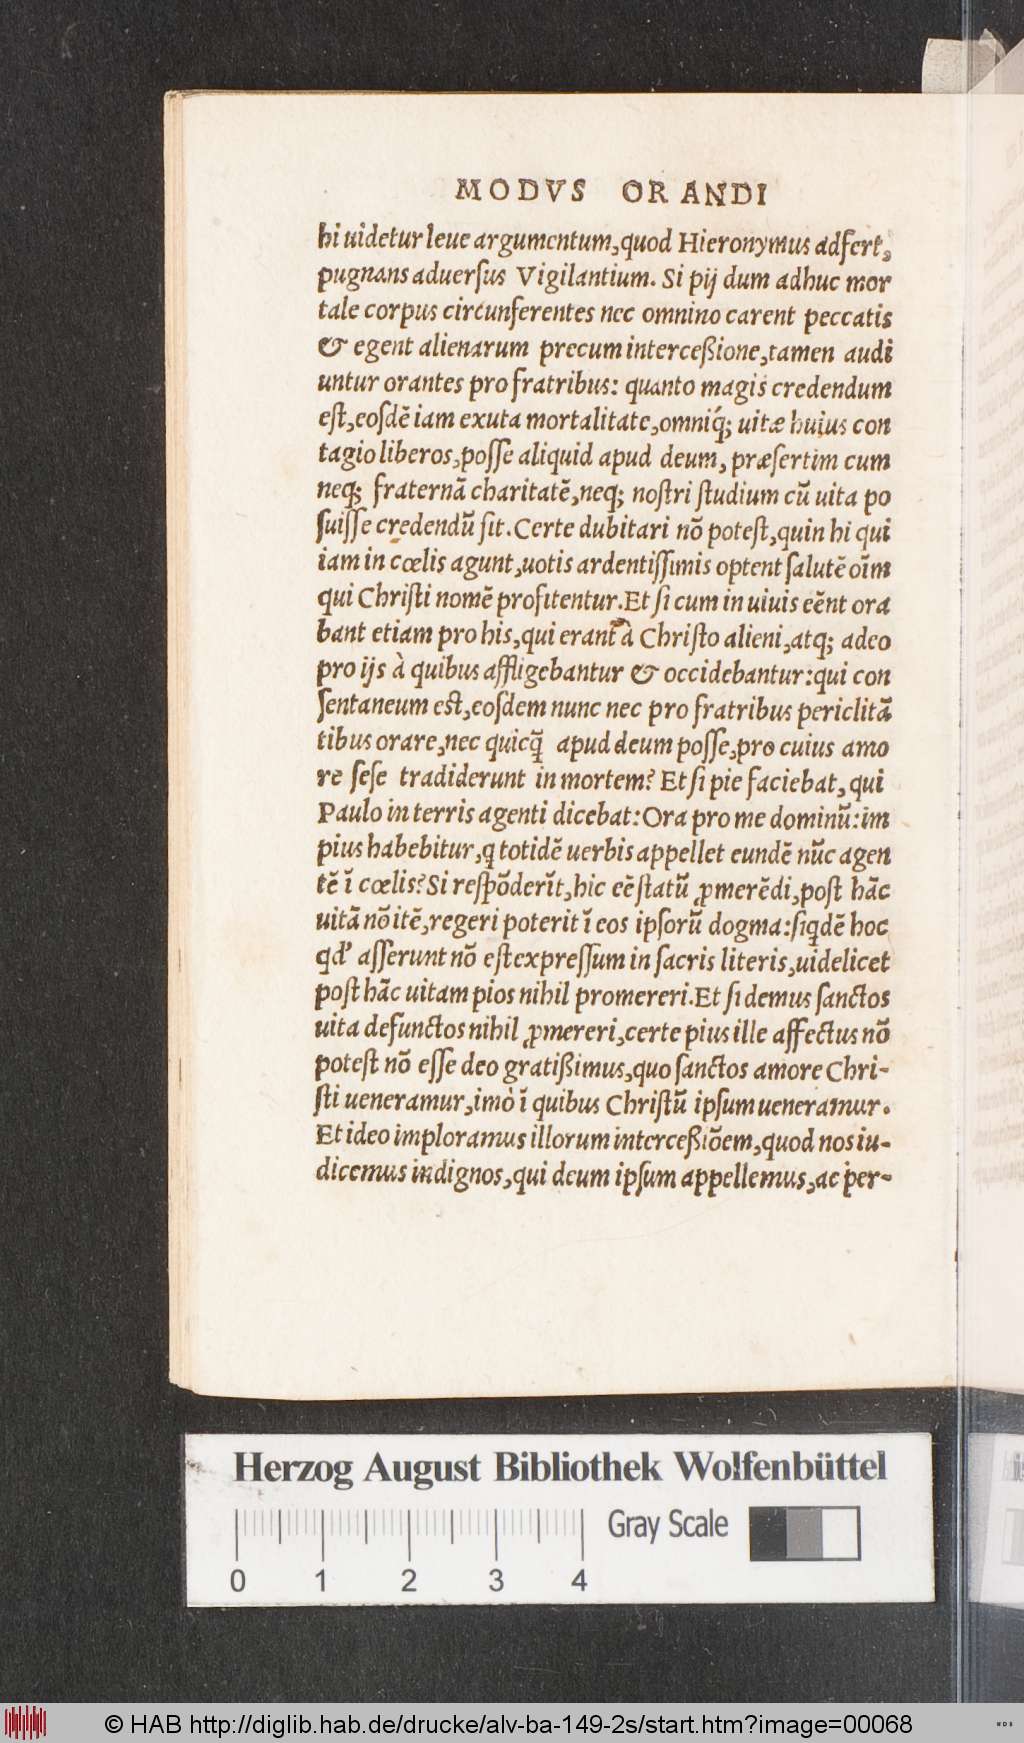 MODVS ORANDI
hi uidetur leue argumentum, quod Hieronymus adfert,
pugnans aduersus Vigilantium. Si pij dum adhuc mor
tale corpus circunferentes nec omnino carent peccatis
& egent alienarum precum interceßione, tamen audi
untur orantes pro fratribus: quanto magis credendum
est, eosdē iam exuta mortalitate, omniq́; uitæ huius con
tagio liberos, posse aliquid apud deum, præsertim cum
neq; fraternā charitatē, neq; nostri studium cū uita po
suisse credendū sit. Certe dubitari nō potest, quin hi qui
iam in cœlis agunt, uotis ardentissimis optent salutē oīm
qui Christi nomē profitentur. Et si cum in uiuis eēnt ora
bant etiam pro his, qui erant à Christo alieni, atq; adeo
pro ijs à quibus affligebantur & occidebantur: qui con
sentaneum est, eosdem nunc nec pro fratribus periclitā
tibus orare, nec quicq̃ apud deum posse, pro cuius amo
re sese tradiderunt in mortem? Et si pie faciebat, qui
Paulo in terris agenti dicebat: Ora pro me dominū: im
pius habebitur, q totidē uerbis appellet eundē nūc agen
tē ī cœlis? Si respōderīt, hic eē statū ꝓmerēdi, post hāc
uitā nō itē, regeri poterit ī eos ipsorū dogma: siqdē hoc
qd' asserunt nō est expressum in sacris literis, uidelicet
post hāc uitam pios nihil promereri. Et si demus sanctos
uita defunctos nihil ꝓmereri, certe pius ille affectus nō
potest nō esse deo gratißimus, quo sanctos amore Chri-
sti ueneramur, imò ī quibus Christū ipsum ueneramur.
Et ideo imploramus illorum interceßiōem, quod nos iu-
dicemus indignos, qui deum ipsum appellemus, ac per-
Herzog August Bibliothek Wolfenbüttel
Gray Scale
0 1 2 3 4
© HAB http://diglib.hab.de/drucke/alv-ba-149-2s/start.htm?image=00068